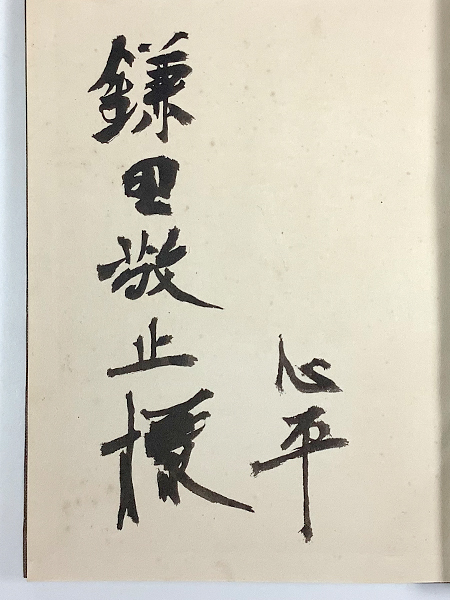 心平
鎌田敬止様